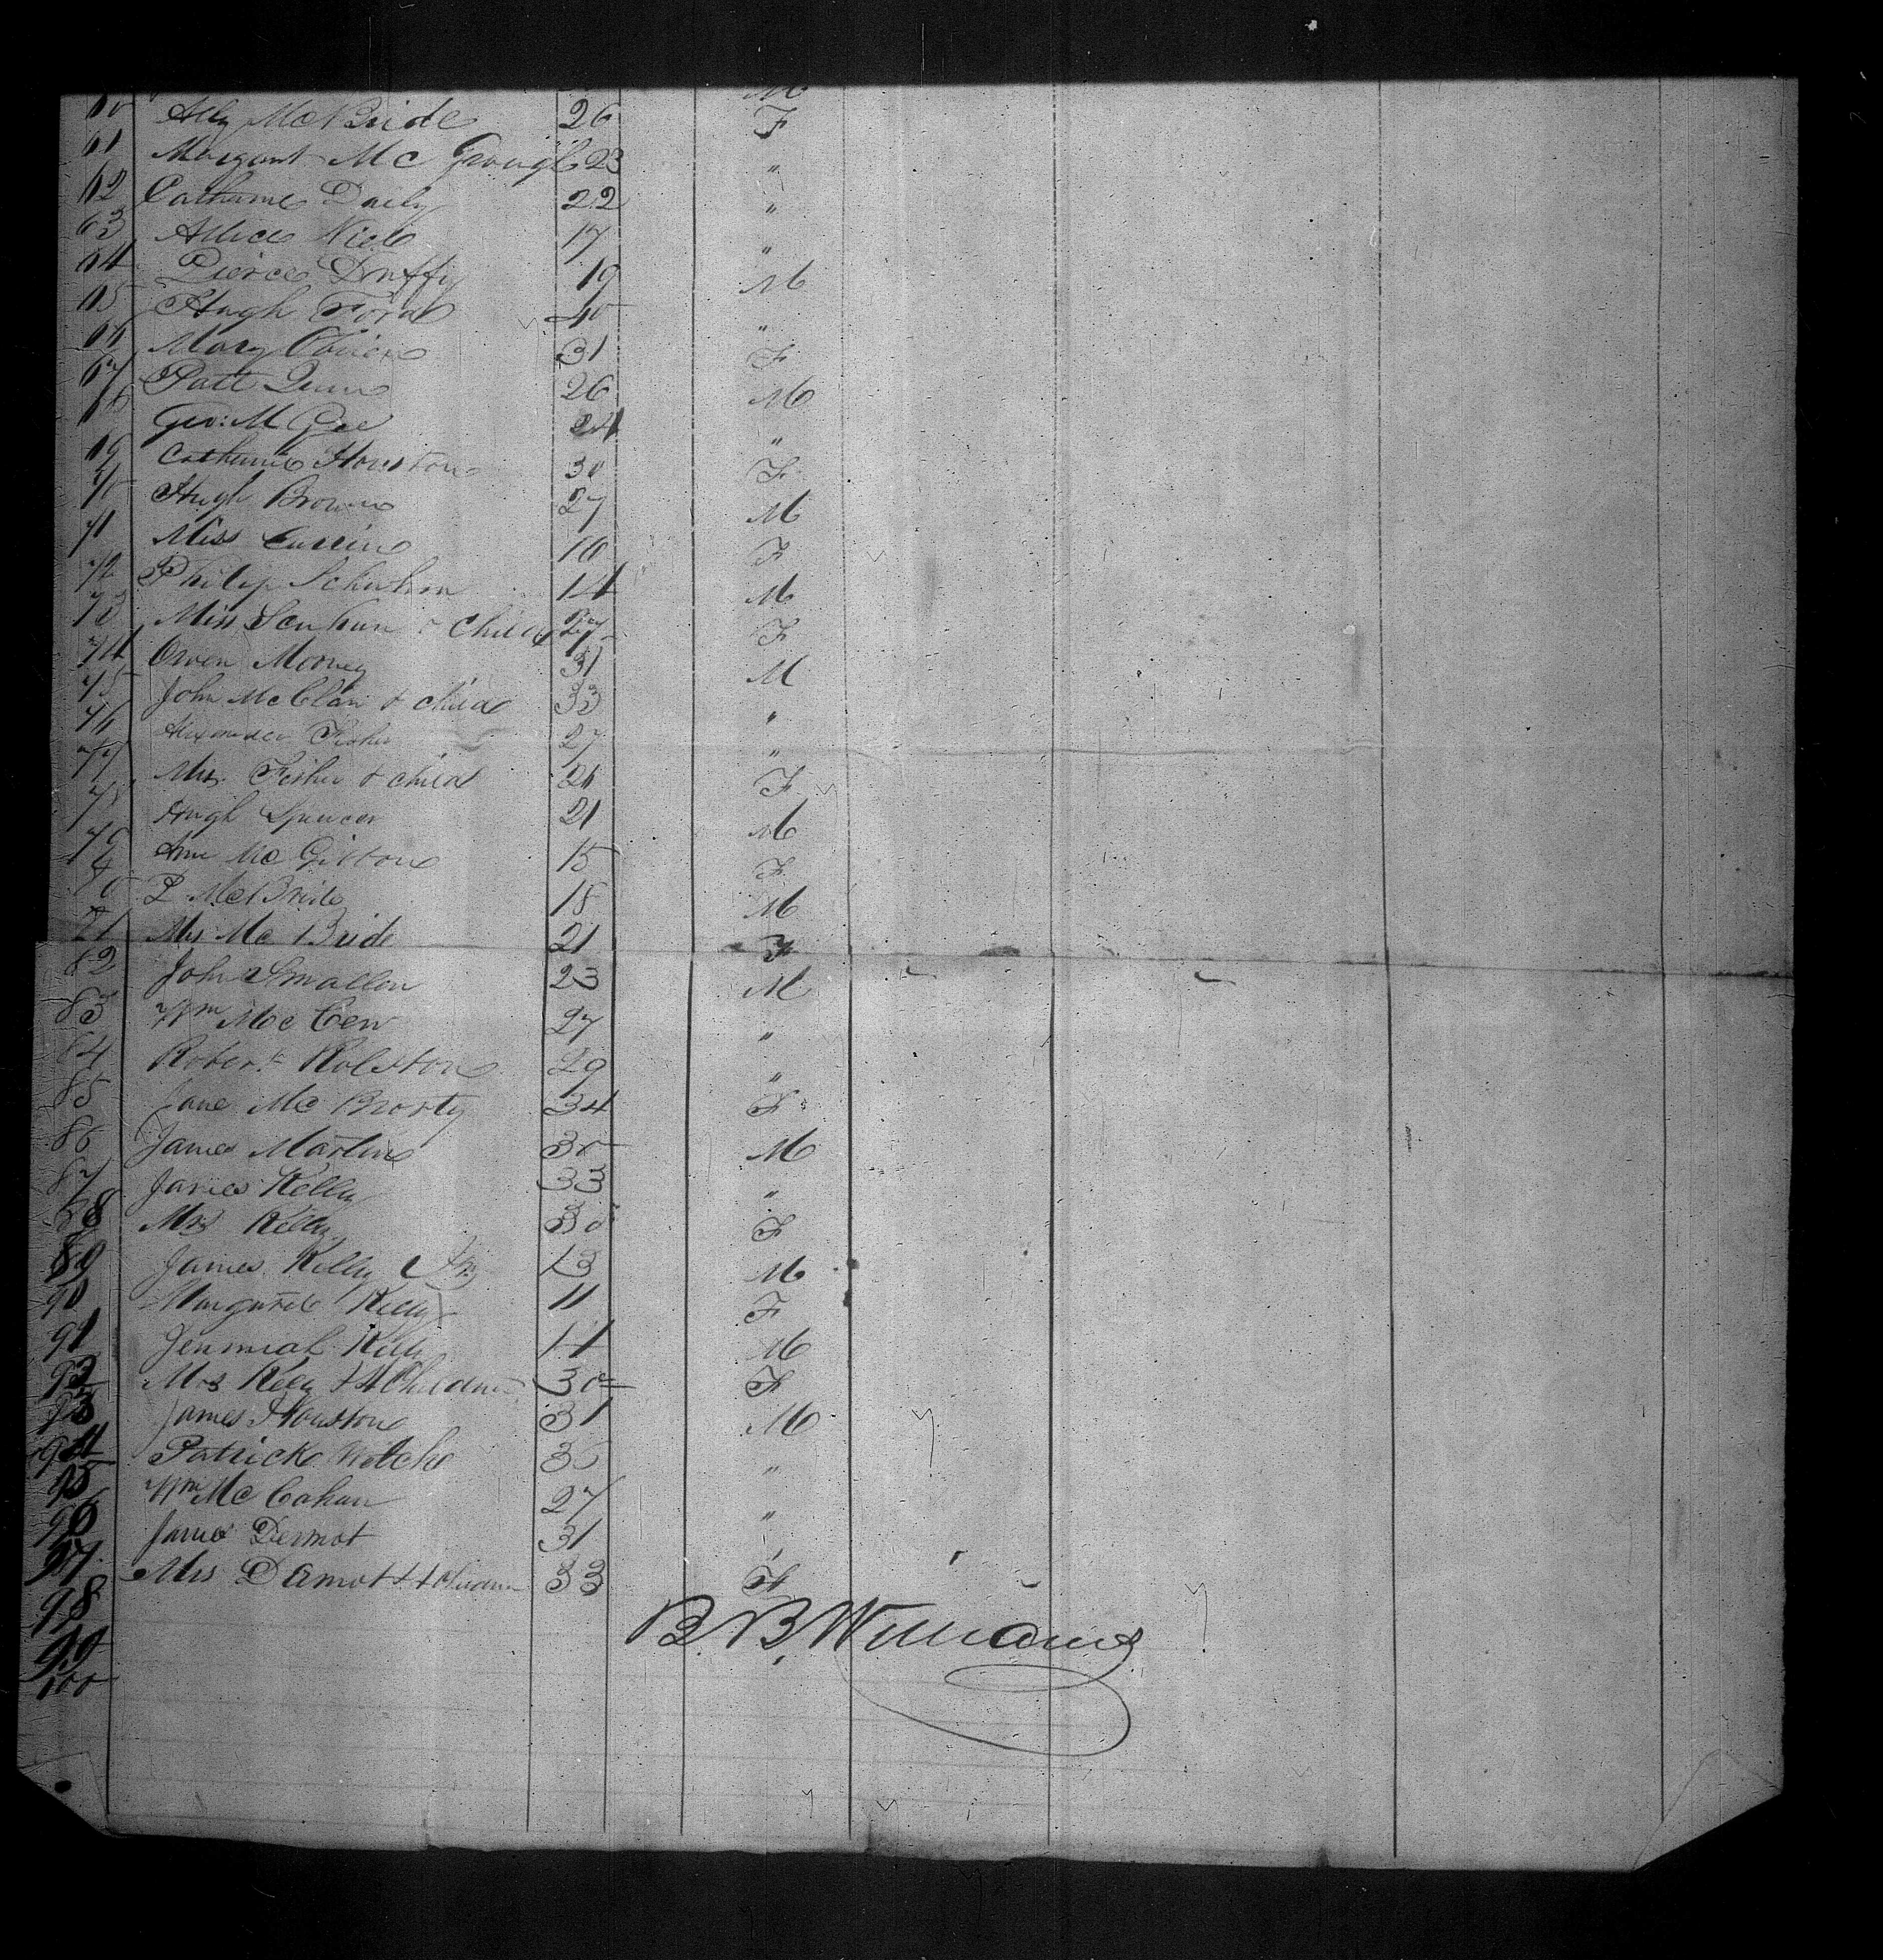 M
60 Ally McBride 26 F
61 Margant Mc Grough 23 "
62 Catharine Daily 22 "
63 Allice Niel 17 "
64 Pierce Duffy 19 M
65 Hugh Ford 40 "
66 Mary Obrien 31 F
67 Patt Quin 26 M
68 Geo: McGee 24 "
69 Catharine Houston 30 F
70 Hugh Brown 27 M
71 Miss 16 F
72 Philip 14 M
73 Miss & Child 27 F
74 Owen Mooney 31 M
75 John McClan & child 33 "
76 Alexander Fisher 27 "
77 Mrs. Fisher & child 21 F
78 Hugh Spencer 21 M
79 Ann McGibbon 15 F
80 P McBride 18 M
81 Mrs McBride 21 F
82 John Smallon 23 M
83 Wm McCew 27 "
84 Robert Rolston 29 "
85 Jane McBrorty 34 F
86 James Martin 30 M
87 James Kelly 33 "
88 Mrs Kelly 30 F
89 James Kelly Jr 13 M
90 Margaret Kelly 11 F
91 Jerimiah Kelly M
92 Mrs Kelly & 4 Children 30 F
93 James Houston 31 M
94 Patrick Welch 36 "
95 Wm McCahan 27 "
96 James Dermot 31 "
97 Mrs Dermot & 4 children 33 F
98
99
100
B. B. Williams